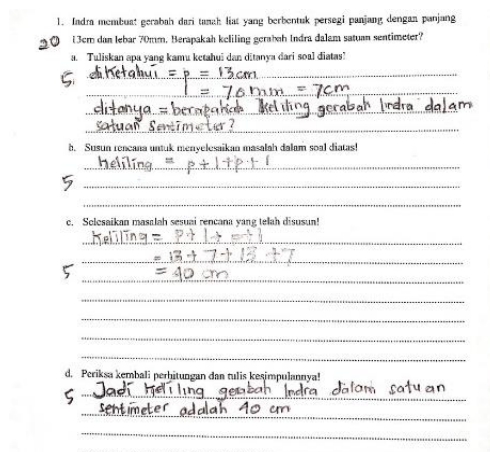 1. Indra membuat gerabah dari tanah liat yang berbentuk persegi panjang dengan panjang
20 13cm dan lebar 70mm. Berapakah keliling gerabah Indra dalam satuan sentimeter?
a. Tuliskan apa yang kamu ketahui dan ditanya dari soal diatas!
5. diketahui = p = 13 cm
l = 70 mm = 7cm
ditanya = berapakah keliling gerabah Indra dalam
satuan sentimeter?
b. Susun rencana untuk menyelesaikan masalah dalam soal diatas!
keliling = p + l + p + l
5
c. Selesaikan masalah sesuai rencana yang telah disusun!
Keliling = p + l + p + l
= 13 + 7 + 13 + 7
5 = 40 cm
d. Periksa kembali perhitungan dan tulis kesimpulannya!
5 Jadi keliling gerabah Indra dalam satuan
sentimeter adalah 40 cm